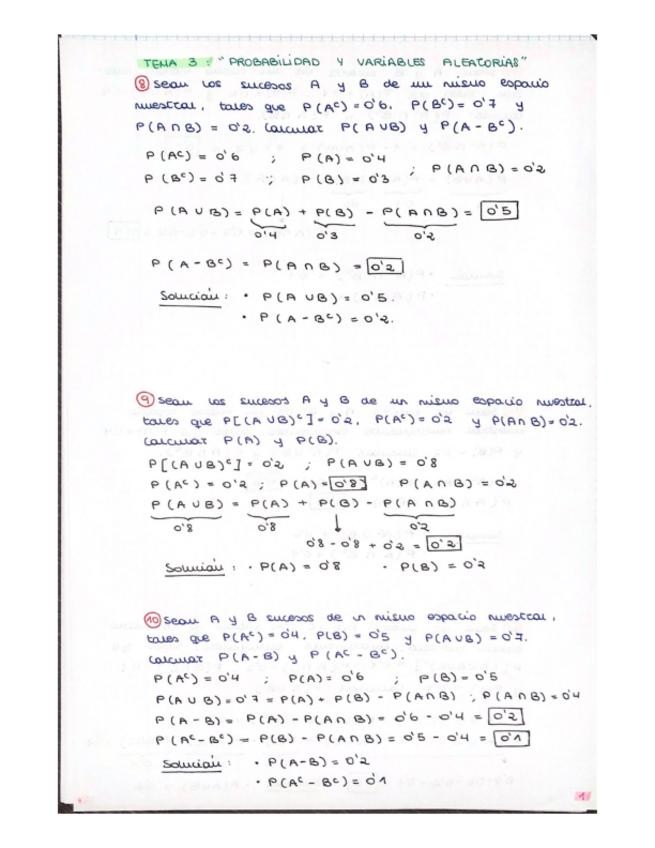 TEMA 3: "PROBABILIDAD Y VARIABLES ALEATORIAS"
8 Sean los sucesos A y B de un mismo espacio
muestral, tales que P(Aᶜ) = 0'6, P(Bᶜ) = 0'7 y
P(A∩B) = 0'2. Calcular P(A∪B) y P(A-Bᶜ).
P(Aᶜ) = 0'6 ; P(A) = 0'4
P(Bᶜ) = 0'7 ; P(B) = 0'3 ; P(A∩B) = 0'2
P(A∪B) = P(A) + P(B) - P(A∩B) = 0'5
0'4 0'3 0'2
P(A-Bᶜ) = P(A∩B) = 0'2
Solución: • P(A∪B) = 0'5.
• P(A-Bᶜ) = 0'2.
9 Sean los sucesos A y B de un mismo espacio muestral,
tales que P[(A∪B)ᶜ] = 0'2, P(Aᶜ) = 0'2 y P(A∩B) = 0'2.
Calcular P(A) y P(B).
P[(A∪B)ᶜ] = 0'2 ; P(A∪B) = 0'8
P(Aᶜ) = 0'2 ; P(A) = 0'8 P(A∩B) = 0'2
P(A∪B) = P(A) + P(B) - P(A∩B)
0'8 0'8 ↓ 0'2
0'8 - 0'8 + 0'2 = 0'2
Solución: • P(A) = 0'8 • P(B) = 0'2
10 Sean A y B sucesos de un mismo espacio muestral,
tales que P(Aᶜ) = 0'4, P(B) = 0'5 y P(A∪B) = 0'7.
Calcular P(A-B) y P(Aᶜ-Bᶜ).
P(Aᶜ) = 0'4 ; P(A) = 0'6 ; P(B) = 0'5
P(A∪B) = 0'7 = P(A) + P(B) - P(A∩B) ; P(A∩B) = 0'4
P(A-B) = P(A) - P(A∩B) = 0'6 - 0'4 = 0'2
P(Aᶜ-Bᶜ) = P(B) - P(A∩B) = 0'5 - 0'4 = 0'1
Solución: • P(A-B) = 0'2
• P(Aᶜ-Bᶜ) = 0'1
1